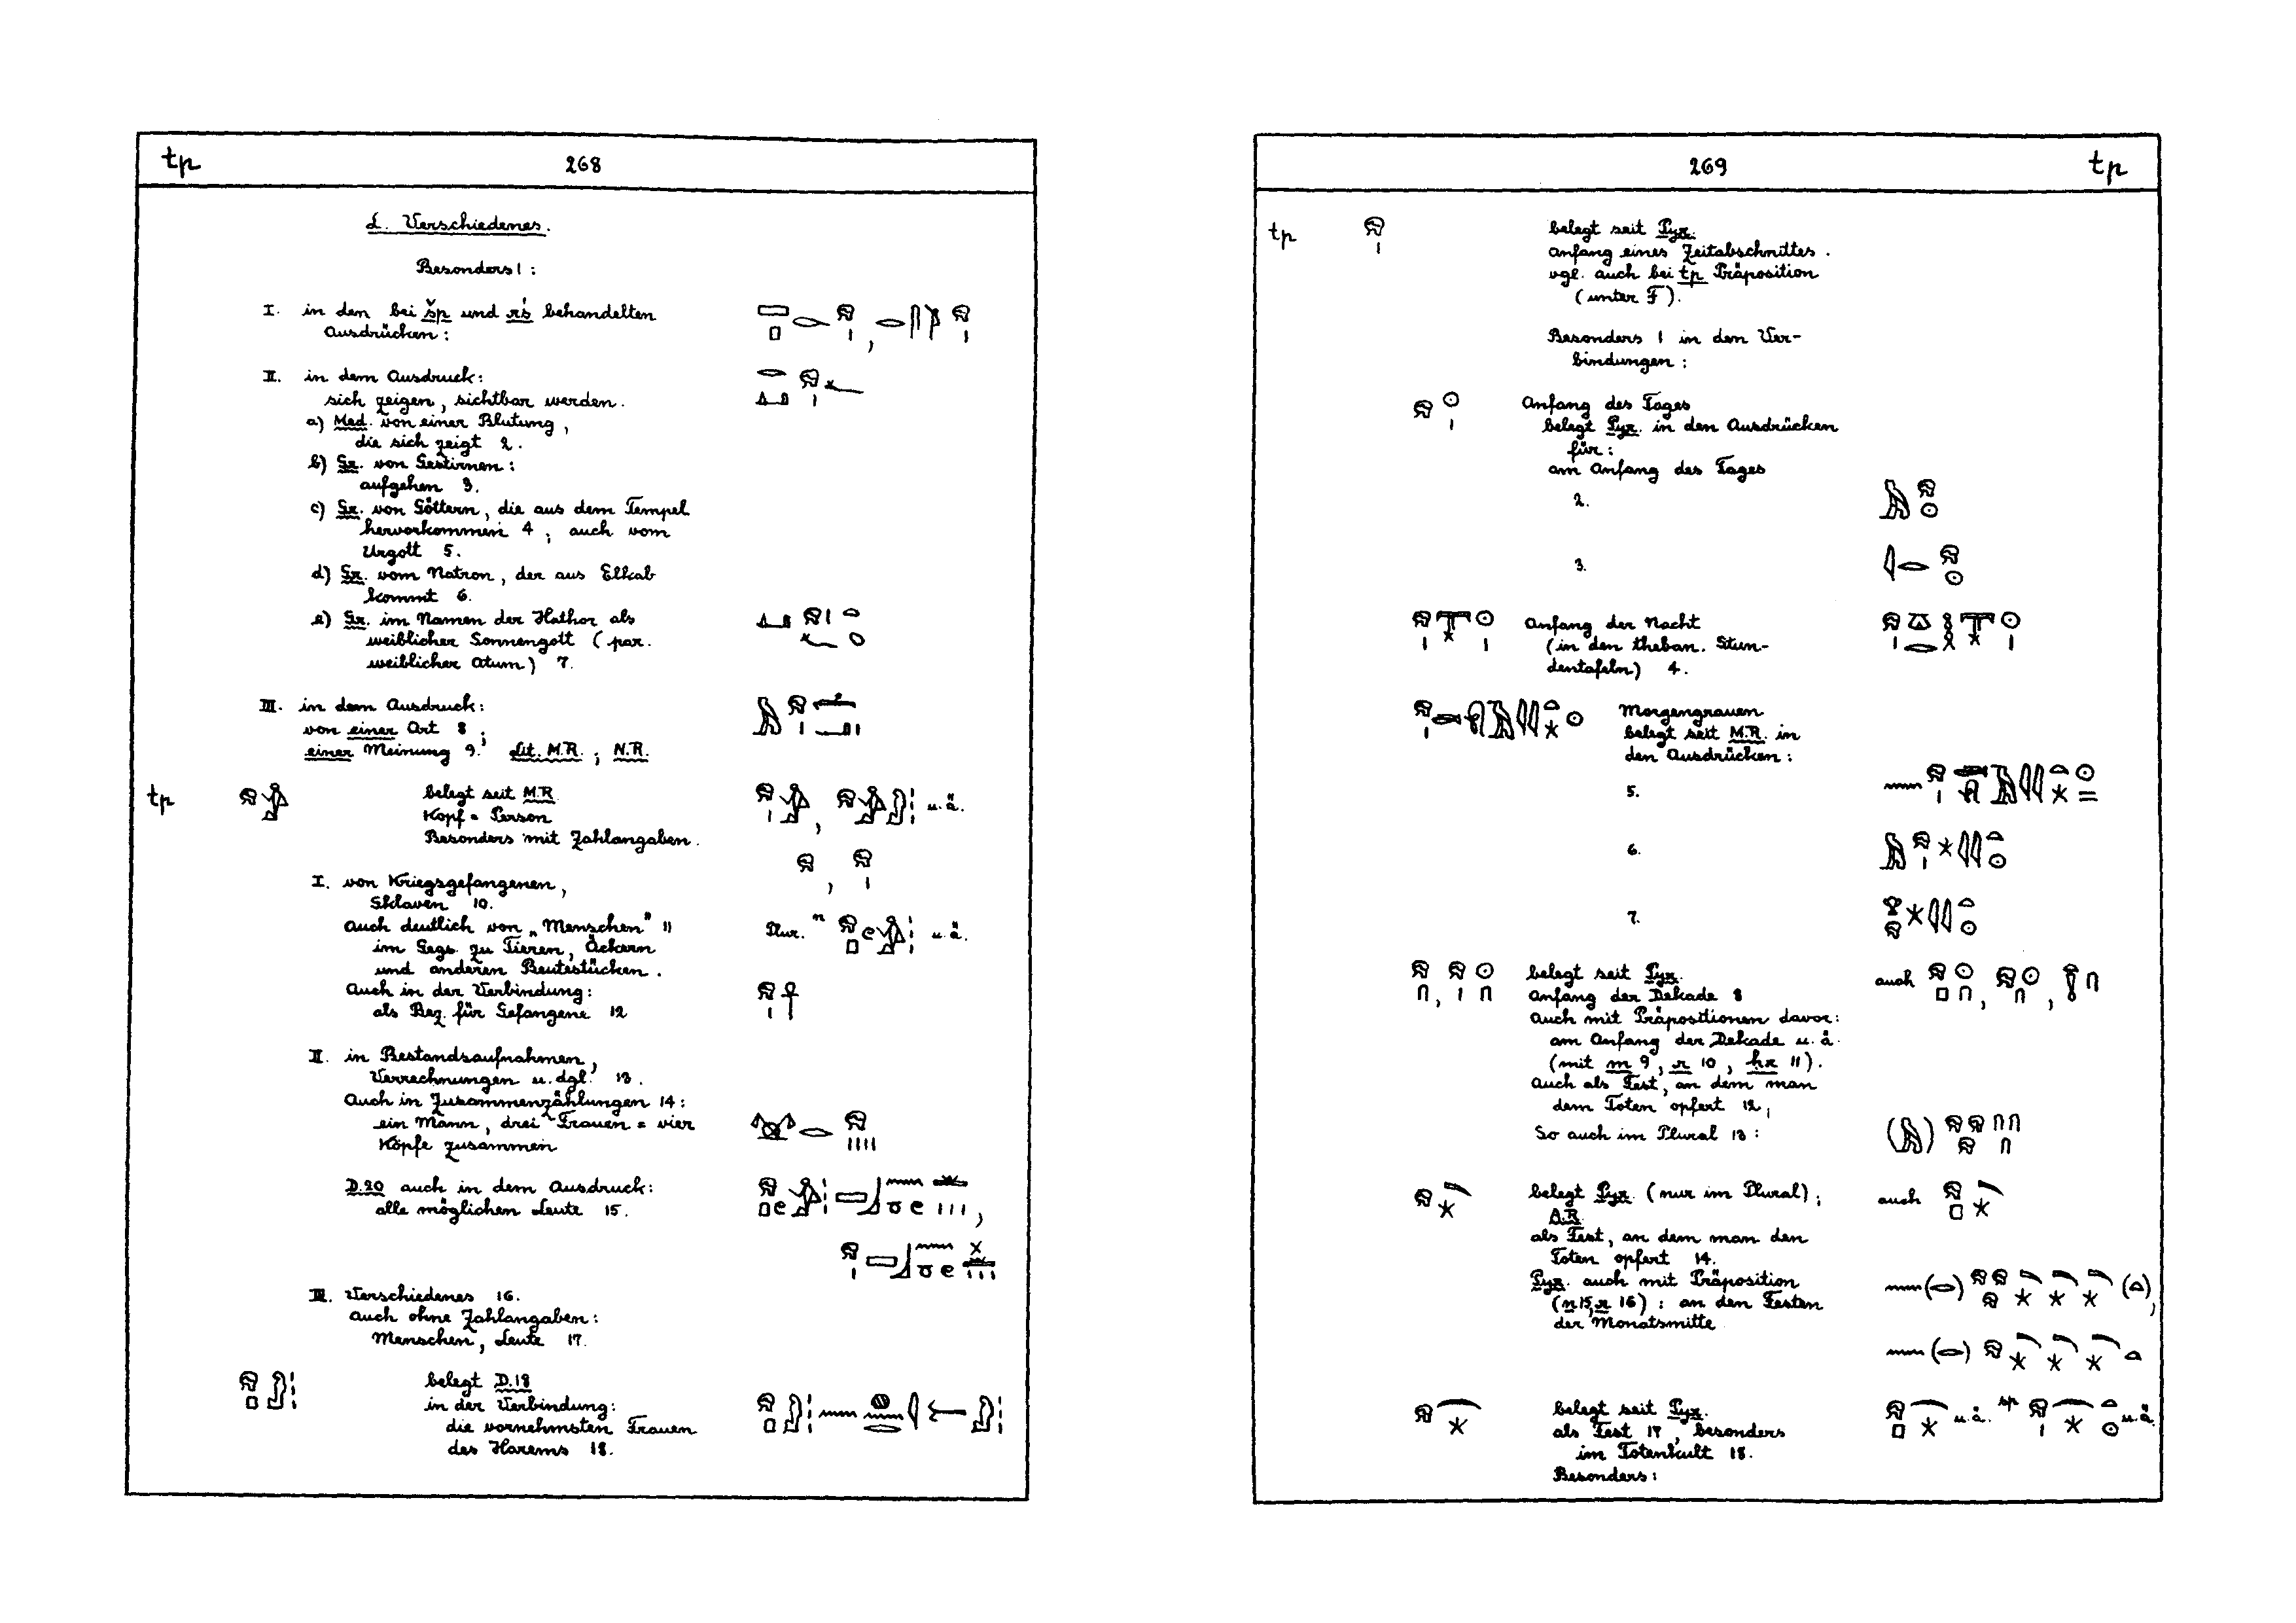 tp 268
L. Verschiedenes.
Besonders 1 :
I. in den bei šp und rś behandelten
Ausdrücken :
II. in dem Ausdruck :
sich zeigen, sichtbar werden.
a) Med. von einer Blutung,
die sich zeigt 2.
b) Gr. von Gestirnen :
aufgehen 3.
c) Gr. von Göttern, die aus dem Tempel
hervorkommen 4 ; auch vom
Urgott 5.
d) Gr. vom Natron, der aus Elkab
kommt 6.
e) Gr. im Namen der Hathor als
weiblicher Sonnengott (par.
weiblicher Atum) 7.
III. in dem Ausdruck :
von einer Art 8 ;
einer Meinung 9. Lit. M.R. ; N.R.
tp belegt seit M.R.
Kopf = Person u.ä.
Besonders mit Zahlangaben.
I. von Kriegsgefangenen,
Sklaven 10.
Auch deutlich von „Menschen" 11 Plur. n u.ä.
im Gegs. zu Tieren, Äckern
und anderen Beutestücken.
Auch in der Verbindung :
als Bez. für Gefangene 12
II. in Bestandsaufnahmen,
Verrechnungen u.dgl. 13.
Auch in Zusammenzählungen 14 :
ein Mann, drei Frauen = vier
Köpfe zusammen
D.20 auch in dem Ausdruck :
alle möglichen Leute 15.
III. Verschiedenes 16.
Auch ohne Zahlangaben :
Menschen, Leute 17.
belegt D.18
in der Verbindung :
die vornehmsten Frauen
des Harems 18.
269 tp
tp belegt seit Pyr.
Anfang eines Zeitabschnittes.
vgl. auch bei tp Präposition
(unter F).
Besonders 1 in den Ver-
bindungen :
Anfang des Tages
belegt Pyr. in den Ausdrücken
für :
am Anfang des Tages
2.
3.
Anfang der Nacht
(in den theban. Stun-
dentafeln) 4.
Morgengrauen
belegt seit M.R. in
den Ausdrücken :
5.
6.
7.
belegt seit Pyr. auch
Anfang der Dekade 8
Auch mit Präpositionen davor :
am Anfang der Dekade u.ä.
(mit m 9, r 10, ḥr 11).
Auch als Fest, an dem man
dem Toten opfert 12,
So auch im Plural 13 :
belegt Pyr. (nur im Plural) ; auch
A.R.
als Fest, an dem man den
Toten opfert 14.
Pyr. auch mit Präposition
(n 15, r 16) : an den Festen
der Monatsmitte
belegt seit Pyr. u.ä. sp u.ä.
als Fest 17, besonders
im Totenkult 18.
Besonders :